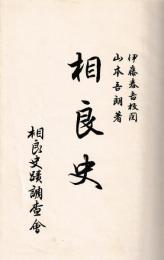 伊藤春吉校閲
山本吾朗著
相良史
相良史蹟調査會